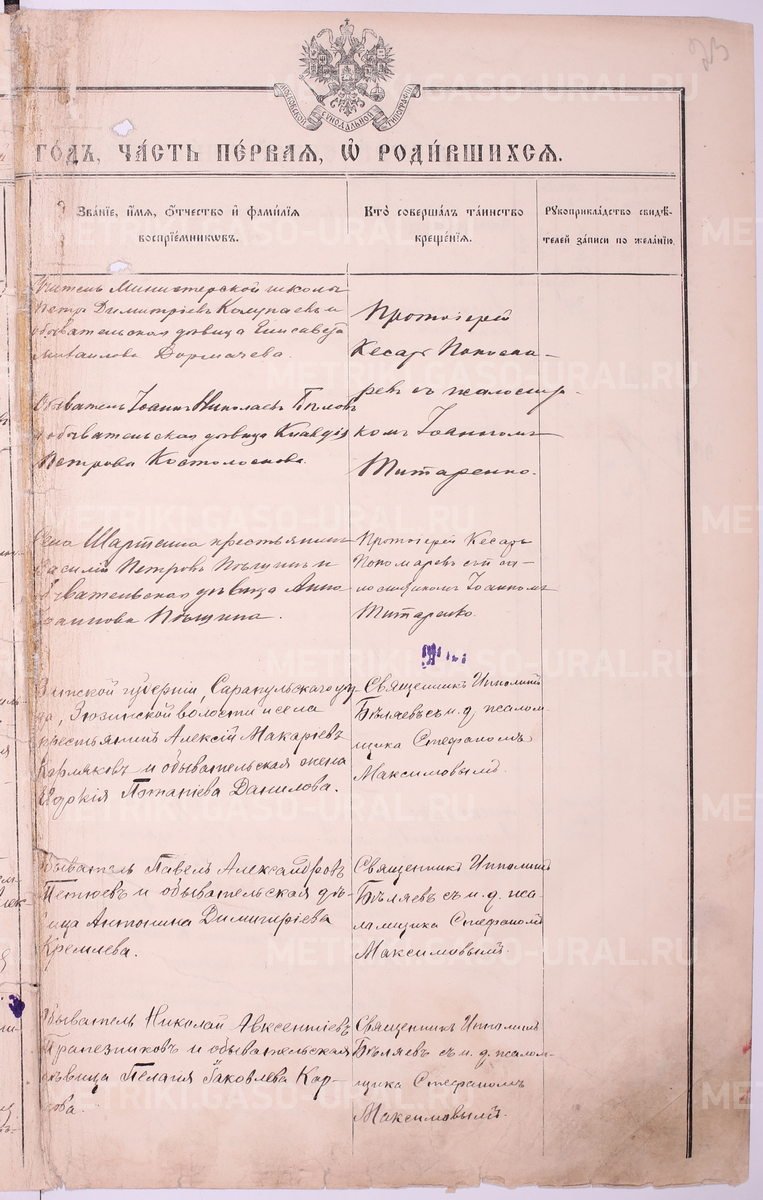 23
МОСКОВСКОЙ СѴНОДАЛЬНОЙ ТИПОГРАФІИ
ГОДЪ, ЧАСТЬ ПЕРВАЯ, Ѡ РОДИВШИХСЯ.
Званіе, имя, отчество и фамилія
воспріемниковъ.
Кто совершалъ таинство
крещенія.
Рукоприкладство свидѣ-
телей записи по желанію.
Учитель Министерской школы
Петръ Димитріевъ и
обывательская дѣвица Елисавета
Михаилова Дормачева.
Протоіерей
Кесарь Понома-
ревъ съ псаломщи-
комъ Іоанномъ
Титаренко.
Обыватель Іоаннъ Николаевъ Бѣловъ
и обывательская дѣвица Клавдія
Петрова
Села Шарташа крестьянинъ
Василій Петровъ и
обывательская дѣвица Анна
Іоаннова
Протоіерей Кесарь
Пономаревъ съ пса-
ломщикомъ Іоанномъ
Титаренко.
Вятской губерніи, Сарапульскаго уѣз-
да, волости и села
крестьянинъ Алексій Макаріевъ
Кормяковъ и обывательская жена
Евдокія Потапіева Данилова.
Священникъ Ипполитъ
Бѣляевъ съ и. д. псалом-
щика Стефаномъ
Максимовымъ.
Обыватель Павелъ Александровъ
Петюевъ и обывательская дѣ-
вица Антонина Димитріева
Кремлева.
Священникъ Ипполитъ
Бѣляевъ съ и. д. пса-
ломщика Стефаномъ
Максимовымъ.
Обыватель Николай Авксентіевъ
Трапезниковъ и обывательская
дѣвица Пелагія Яковлева Кар-
Священникъ Ипполитъ
Бѣляевъ съ и. д. псалом-
щика Стефаномъ
Максимовымъ.
METRIKI.GASO-URAL.RU